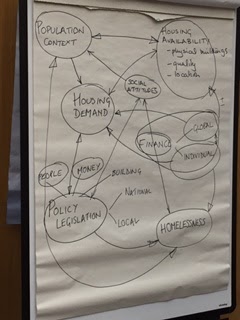 POPULATION
CONTEXT
HOUSING
AVAILABILITY
- physical buildings
- quality
- location
SOCIAL
ATTITUDES
HOUSING
DEMAND
GLOBAL
FINANCE
INDIVIDUAL
PEOPLE
MONEY
BUILDING
NATIONAL
POLICY
LEGISLATION
LOCAL
HOMELESSNESS